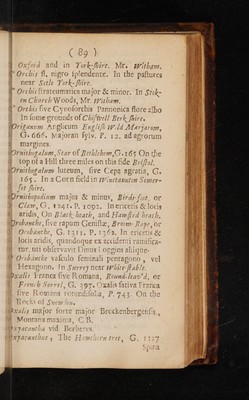 ( 89 )
Oxford and in York-shire. Mr. Witham.
Orchis fl. nigro splendente. In the pastures
near Settle York-shire.
Orchis strateumatica major & minor. In Stok-
en Church Woods, Mr. Witham.
Orchis sive Cynosorchis Pannonica flore albo
In some grounds of Chisswell Berk shire.
Origanum Anglicum English Wild Marjoram,
G. 666. Majoran sylv. P. 12. ad agrorum
margines.
Ornithogalum, Star of Bethlehem, G. 165 On the
top of a Hill three miles on this side Bristol.
Ornithogalum luteum, sive Cepa agratia, G.
165. In a Corn field in Wincaunton Somer-
set shire.
Ornithopodium majus & minus, Birds-foot, or
Claw, G. 1241. P. 1092. In ericetis & locis
aridis, On Black heath, and Hamsted heath.
Orobanche, sive rapum Genistæ, Broom-Rape, or
Orobanche, G. 1311. P. 1362. In ericetis &
locis aridis, quandoque ex accidenti ramifica-
tur, uti observavit Dmus Loggins aliique.
Orobanche vasculo seminali pentagono, vel
Hexagono. In Surrey near White-stable.
Oxalis Franca sive Romana, Round-leav'd, or
French Sorrel, G. 397. Oxalis sativa Franca
sive Romana rotundifolia, P. 743. On the
Rocks of
Oxalis major forte major Breckenbergensis,
Montana maxima, C B.
Oxyacantha vid Berberes.
Oxyacanthus, The Hawthorn tree, G. 1327
Spina